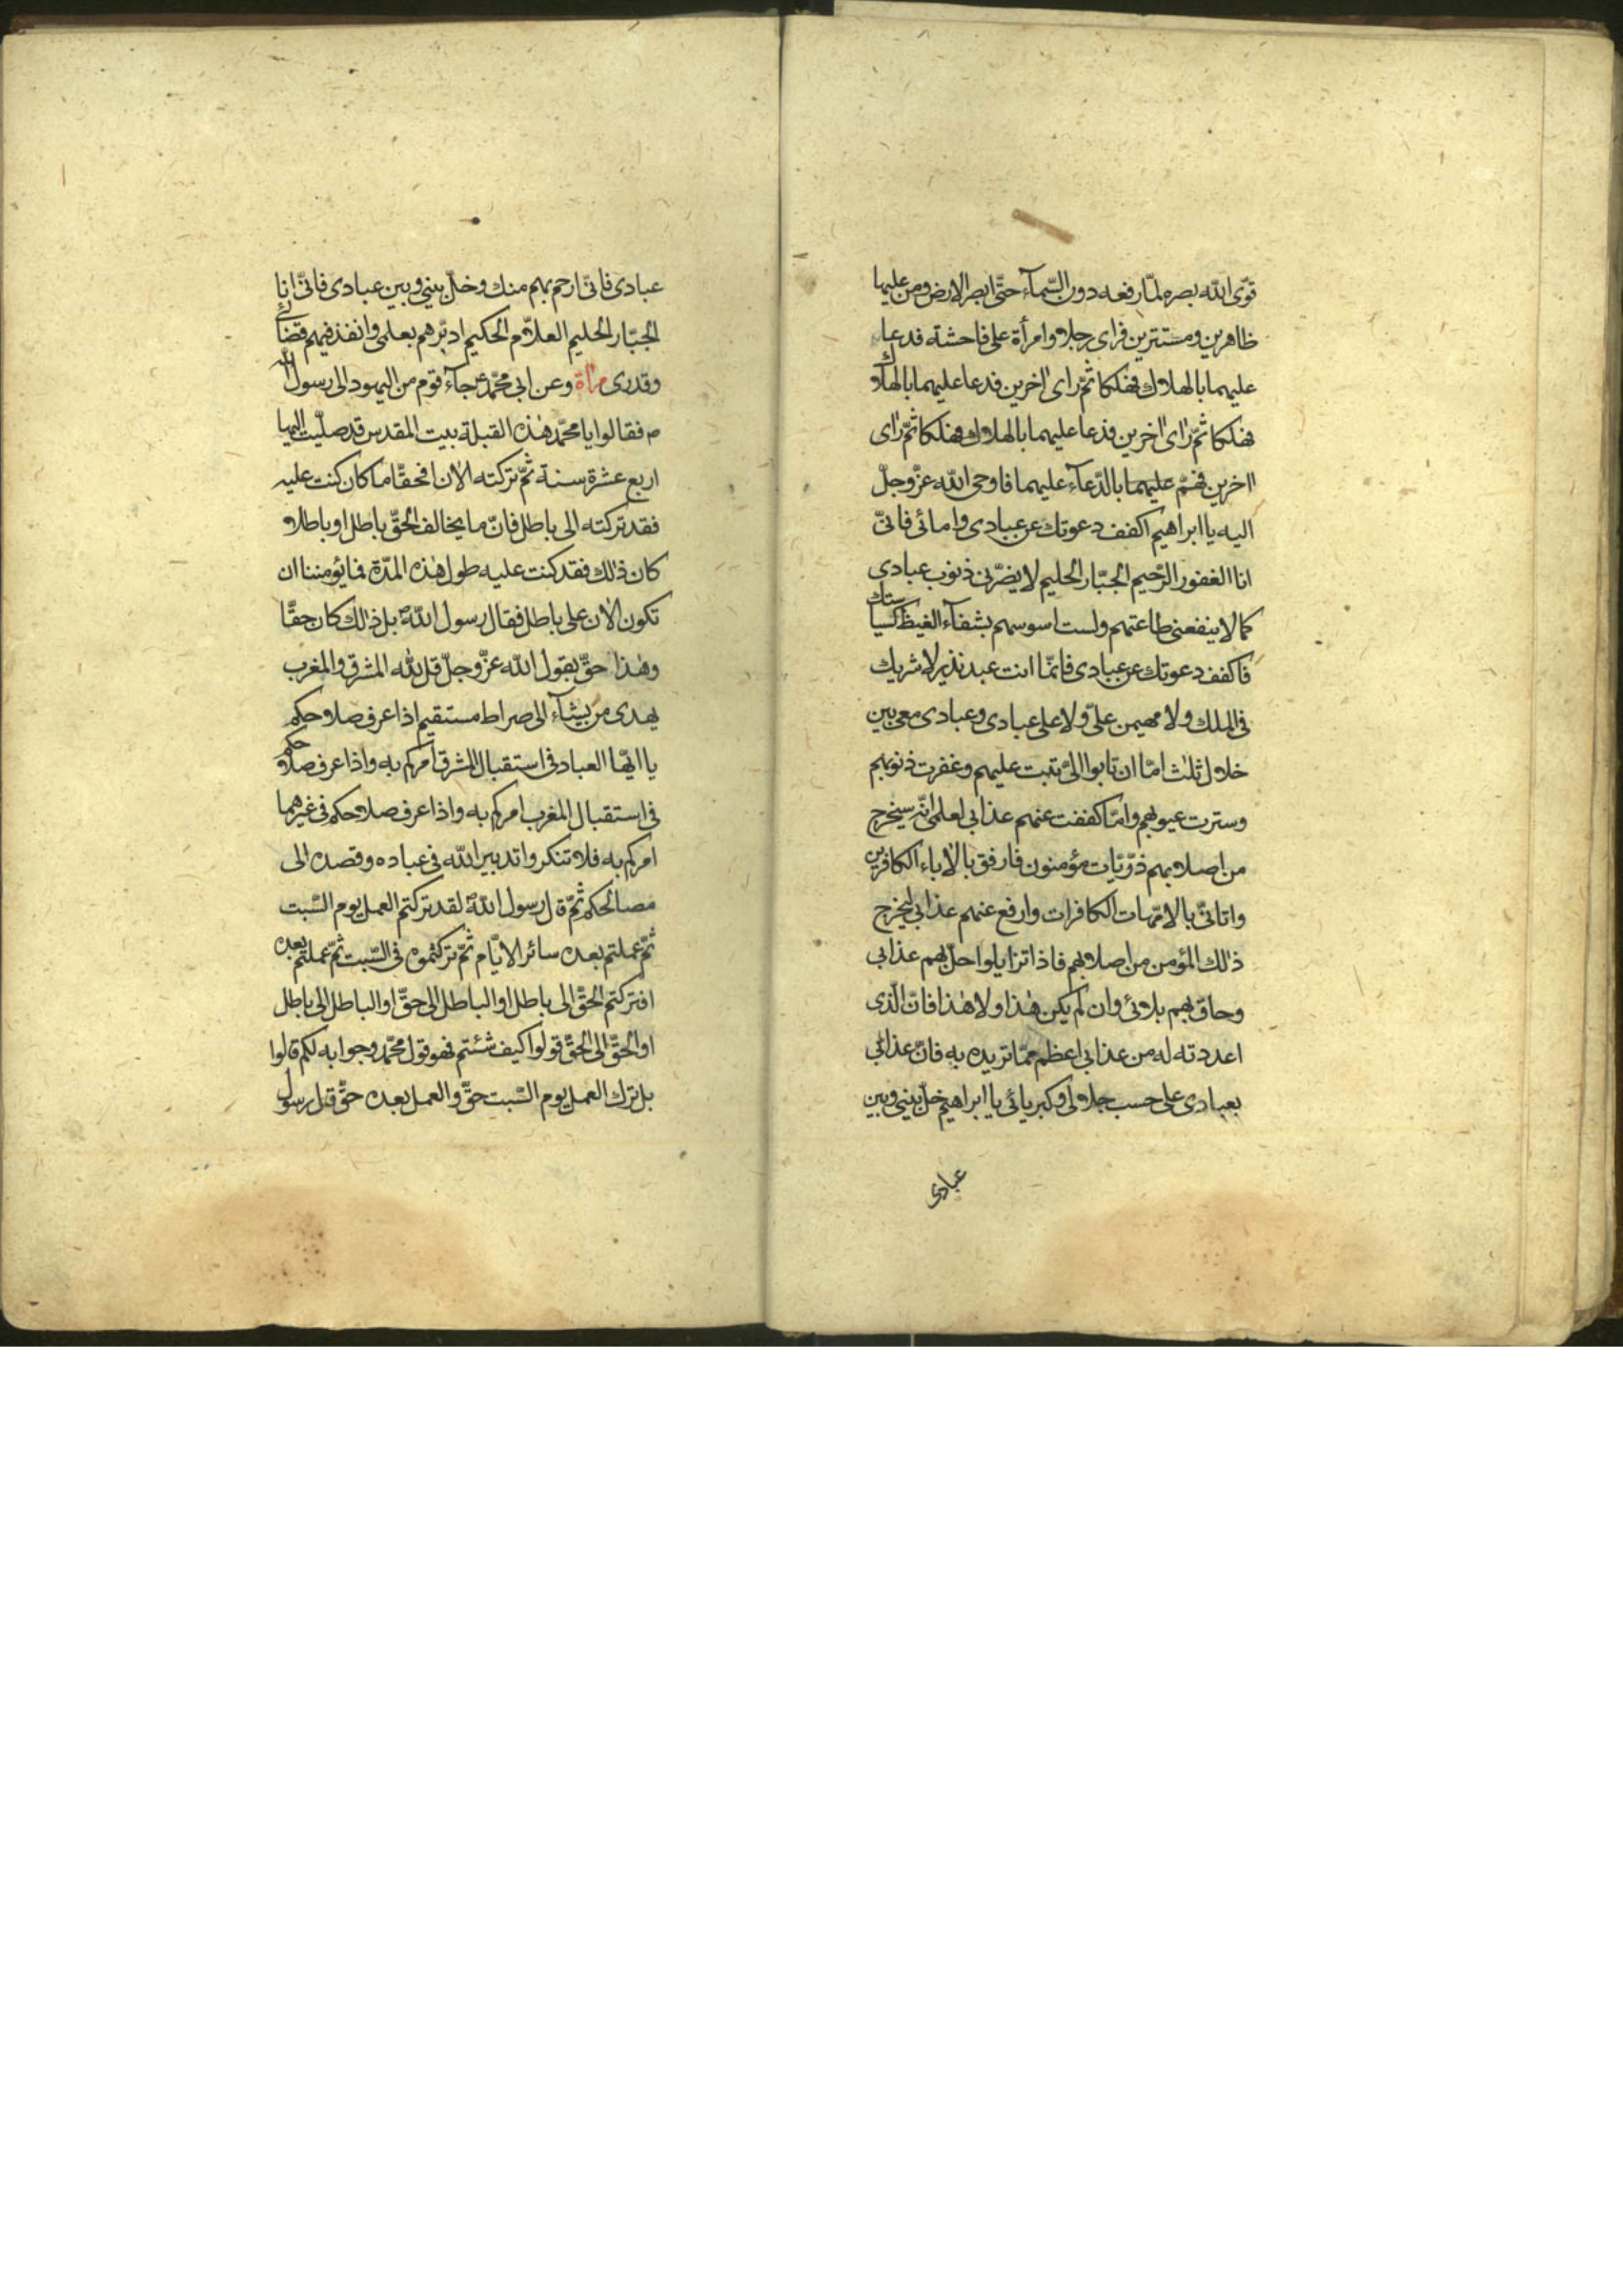 قوّى اللّه بصره لمّا رفعه دون السّمآء حتّى ابصر الارض ومن عليها
ظاهرين ومستترين فراى رجلا وامرأة على فاحشة فدعا
عليهما بالهلاك فهلكا ثمّ راى اخرين فدعا عليهما بالهلاك
فهلكا ثمّ راى اخرين فدعا عليهما بالهلاك فهلكا ثمّ راى
اخرين فهمّ عليهما بالدّعآء عليهما فاوحى اللّه عزّ وجلّ
اليه يا ابراهيم اكفف دعوتك عن عبادى وامائى فانّى
انا الغفور الرّحيم الجبّار الحليم لا يضرّنى ذنوب عبادى
كما لا ينفعنى طاعتهم ولست اسوسهم بشفآء الغيظ كسياستك
فاكفف دعوتك عن عبادى فانّما انت عبد نذير لا شريك
فى الملك ولا مهيمن علىّ ولا على عبادى وعبادى معى بين
خلال ثلث امّا ان تابوا الىّ فتبت عليهم وغفرت ذنوبهم
وسترت عيوبهم وامّا كففت عنهم عذابى لعلمى انّه سيخرج
من اصلابهم ذرّيّات مؤمنون فارفق بالاباء الكافرين
واتانّى بالامّهات الكافرات وارفع عنهم عذابى ليخرج
ذلك المؤمن من اصلابهم فاذا تزايلوا حلّ بهم عذابى
وحاق بهم بلائى وان لم يكن هذا ولا هذا فانّ الّذى
اعددته له من عذابى اعظم ممّا تريده به فانّ عذابى
بعبادى على حسب جلالى وكبريائى يا ابراهيم خلّ بينى وبين
عبادى
عبادى فانّى ارحم بهم منك وخلّ بينى وبين عبادى فانّى انا
الجبّار الحليم العلّام الحكيم ادبّرهم بعلمى وانفذ فيهم قضائى
وقدرى مرآة وعن ابى محمّد ع جآء قوم من اليهود الى رسول اللّه
ص فقالوا يا محمّد هذه القبلة بيت المقدس قد صلّيت اليها
اربع عشرة سنة ثمّ تركته الان افحقّا ما كان كنت عليه
فقد تركته الى باطل فانّ ما يخالف الحقّ باطل او باطلا
كان ذلك فقد كنت عليه طول هذه المدّة فما يؤمننا ان
تكون الان على باطل فقال رسول اللّه ص بل ذلك كان حقّا
وهذا حقّ يقول اللّه عزّ وجلّ قل للّه المشرق والمغرب
يهدى من يشآء الى صراط مستقيم اذا عرف صلاحكم
يا ايّها العباد فى استقبال المشرق امركم به واذا عرف صلاحكم
فى استقبال المغرب امركم به واذا عرف صلاحكم فى غيرهما
امركم به فلا تنكروا تدبير اللّه فى عباده وقصده الى
مصالحكم ثمّ قال رسول اللّه ص لقد تركتم العمل يوم السّبت
ثمّ عملتم بعده سائر الايّام ثمّ تركتموه فى السّبت ثمّ عملتم بعده
افتركتم الحقّ الى باطل او الباطل الى حقّ او الباطل الى باطل
او الحقّ الى الحقّ قولوا كيف شئتم فهو قول محمّد وجوابه لكم قالوا
بل ترك العمل يوم السّبت حقّ والعمل بعده حقّ فقال رسول